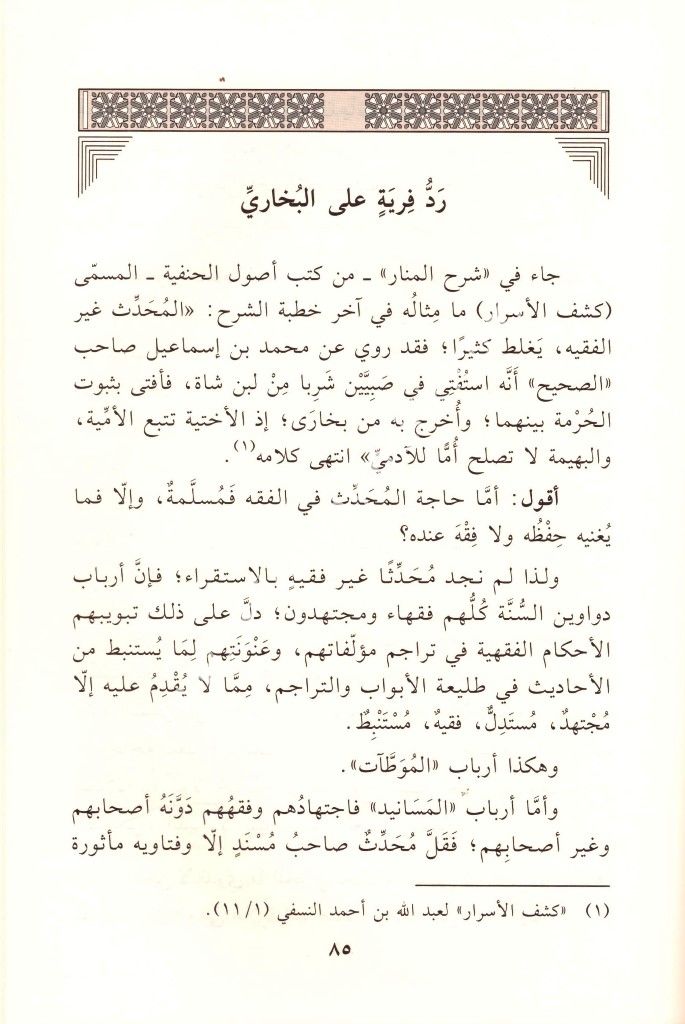 رَدُّ فِريَةٍ على البُخاريِّ
جاء في «شرح المنار» ـ من كتب أصول الحنفية ـ المسمّى
(كشف الأسرار) ما مِثالُه في آخر خطبة الشرح: «المُحَدِّث غير
الفقيه، يَغلط كثيرًا؛ فقد روي عن محمد بن إسماعيل صاحب
«الصحيح» أَنَّه استُفْتِي في صَبِيَّيْن شَرِبا مِنْ لبن شاة، فأفتى بثبوت
الحُرْمة بينهما؛ وأُخرج به من بخارَى؛ إذ الأختية تتبع الأمِّية،
والبهيمة لا تصلح أُمًّا للآدميِّ» انتهى كلامه(١).
أقول: أمَّا حاجة المُحَدِّث في الفقه فَمُسلَّمةٌ، وإلّا فما
يُغنيه حِفْظُه ولا فِقْهَ عنده؟
ولذا لم نجد مُحَدِّثًا غير فقيهٍ بالاستقراء؛ فإنَّ أرباب
دواوين السُّنَّة كُلُّهم فقهاء ومجتهدون؛ دلَّ على ذلك تبويبهم
الأحكام الفقهية في تراجم مؤلّفاتهم، وعَنْوَنَتِهم لِمَا يُستنبط من
الأحاديث في طليعة الأبواب والتراجم، مِمَّا لا يُقْدِمُ عليه إلّا
مُجْتهدٌ، مُستَدِلٌّ، فقيهٌ، مُسْتَنْبِطٌ.
وهكذا أرباب «المُوَطَّآت».
وأمَّا أرباب «المَسَانيد» فاجتهادُهم وفقهُهم دَوَّنَهُ أصحابهم
وغير أصحابِهم؛ فَقَلَّ مُحَدِّثٌ صاحبُ مُسْنَدٍ إلّا وفتاويه مأثورة
(١) «كشف الأسرار» لعبد الله بن أحمد النسفي (١١/١).
٨٥